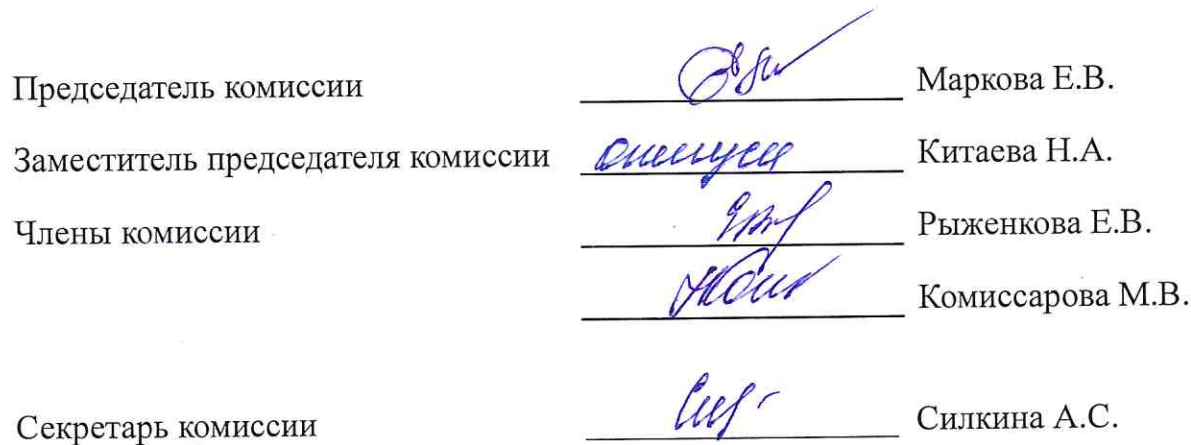 Председатель комиссии Маркова Е.В.
Заместитель председателя комиссии отпуск Китаева Н.А.
Члены комиссии Рыженкова Е.В.
Комиссарова М.В.
Секретарь комиссии Силкина А.С.